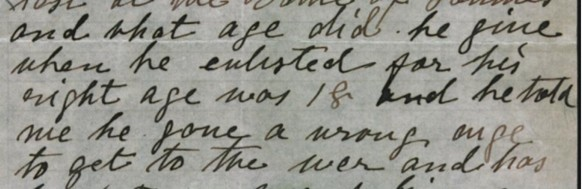 and what age did he give
when he enlisted for his
right age was 18 and he told
me he gave a wrong age
to get to the wer and has